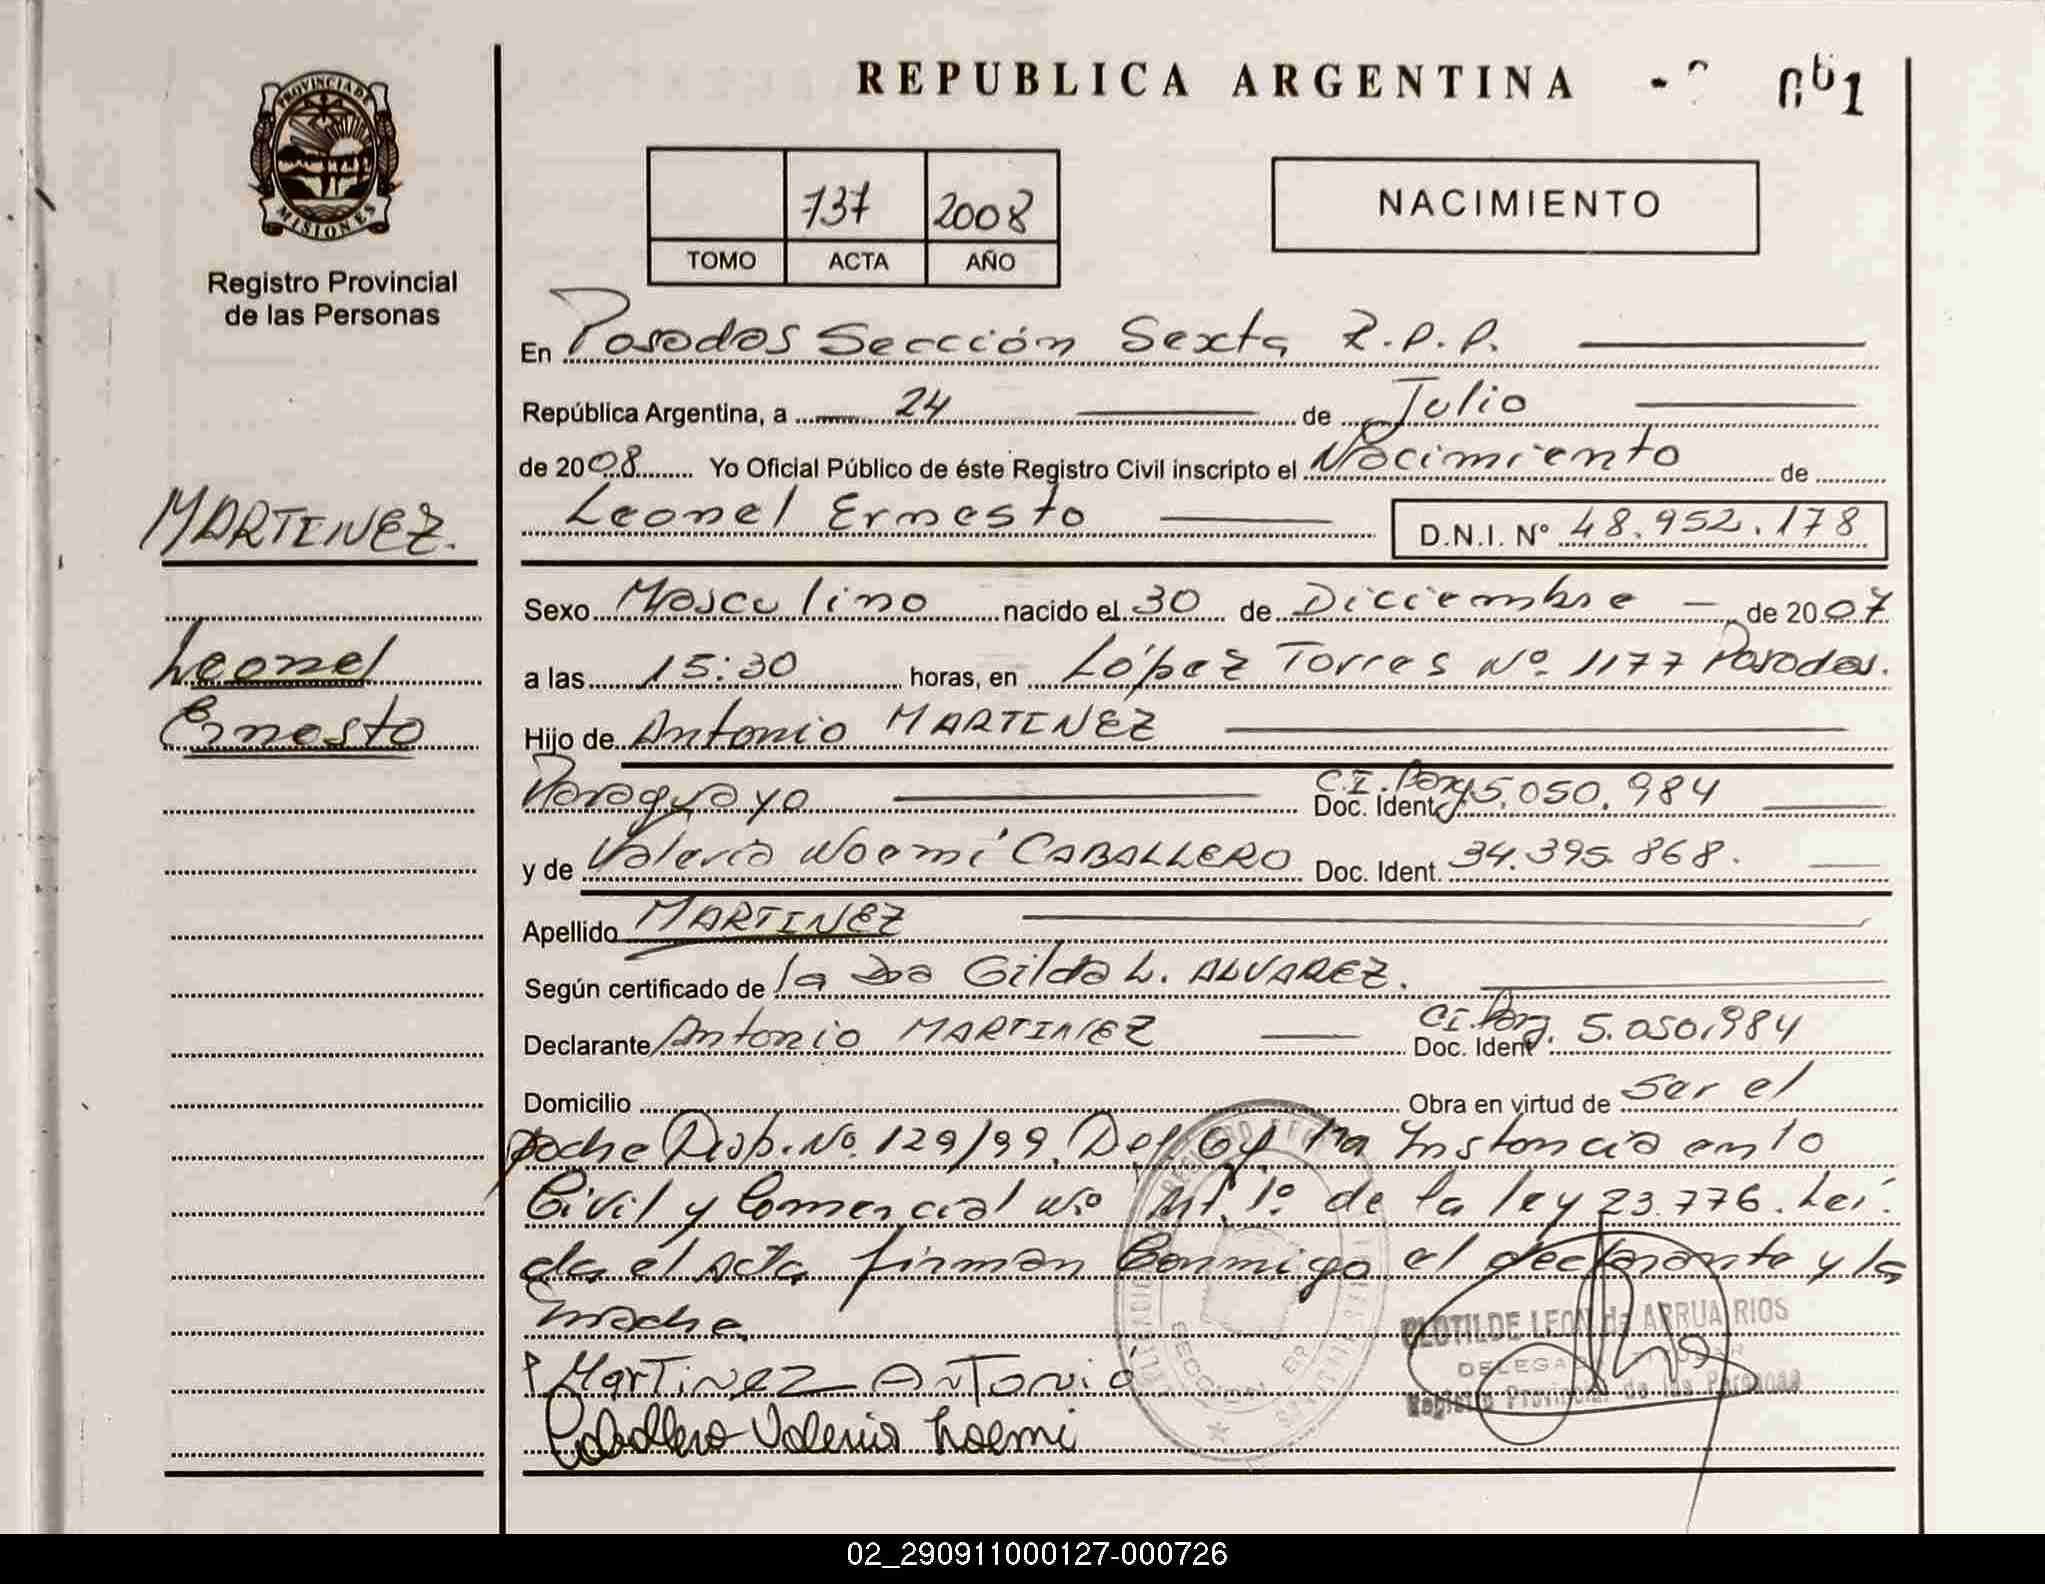 REPUBLICA ARGENTINA
PROVINCIA DE
MISIONES
Registro Provincial
de las Personas
737 2008
TOMO ACTA AÑO
NACIMIENTO
En Posadas Sección Sexta R.P.P.
República Argentina, a 24 de Julio
de 2008 Yo Oficial Público de éste Registro Civil inscripto el Nacimiento de
Leonel Ernesto D.N.I. Nº 48.952.178
MARTINEZ.
Leonel
Ernesto
Sexo Masculino nacido el 30 de Diciembre de 2007
a las 15:30 horas, en López Torres Nº 1177 Posadas.
Hijo de Antonio MARTINEZ
Paraguayo Doc. Ident. C.I. Parg. 5.050.984
y de Valeria Noemí CABALLERO Doc. Ident. 34.395.868.
Apellido MARTINEZ
Según certificado de la Dra Gilda L. ALVAREZ.
Declarante Antonio MARTINEZ Doc. Ident. CI. Parg. 5.050.984
Domicilio Obra en virtud de Ser el
padre Disp. Nº 129/99. Del 1ra Instancia en lo
Civil y Comercial Nº 1º de la ley 23.776. Leí
da el acta firman Conmigo el declarante y la
madre
Martinez Antonio
Caballero Valeria Noemi
CLOTILDE LEON de ARRUA RIOS
Registro Provincial de las Personas
02_290911000127-000726